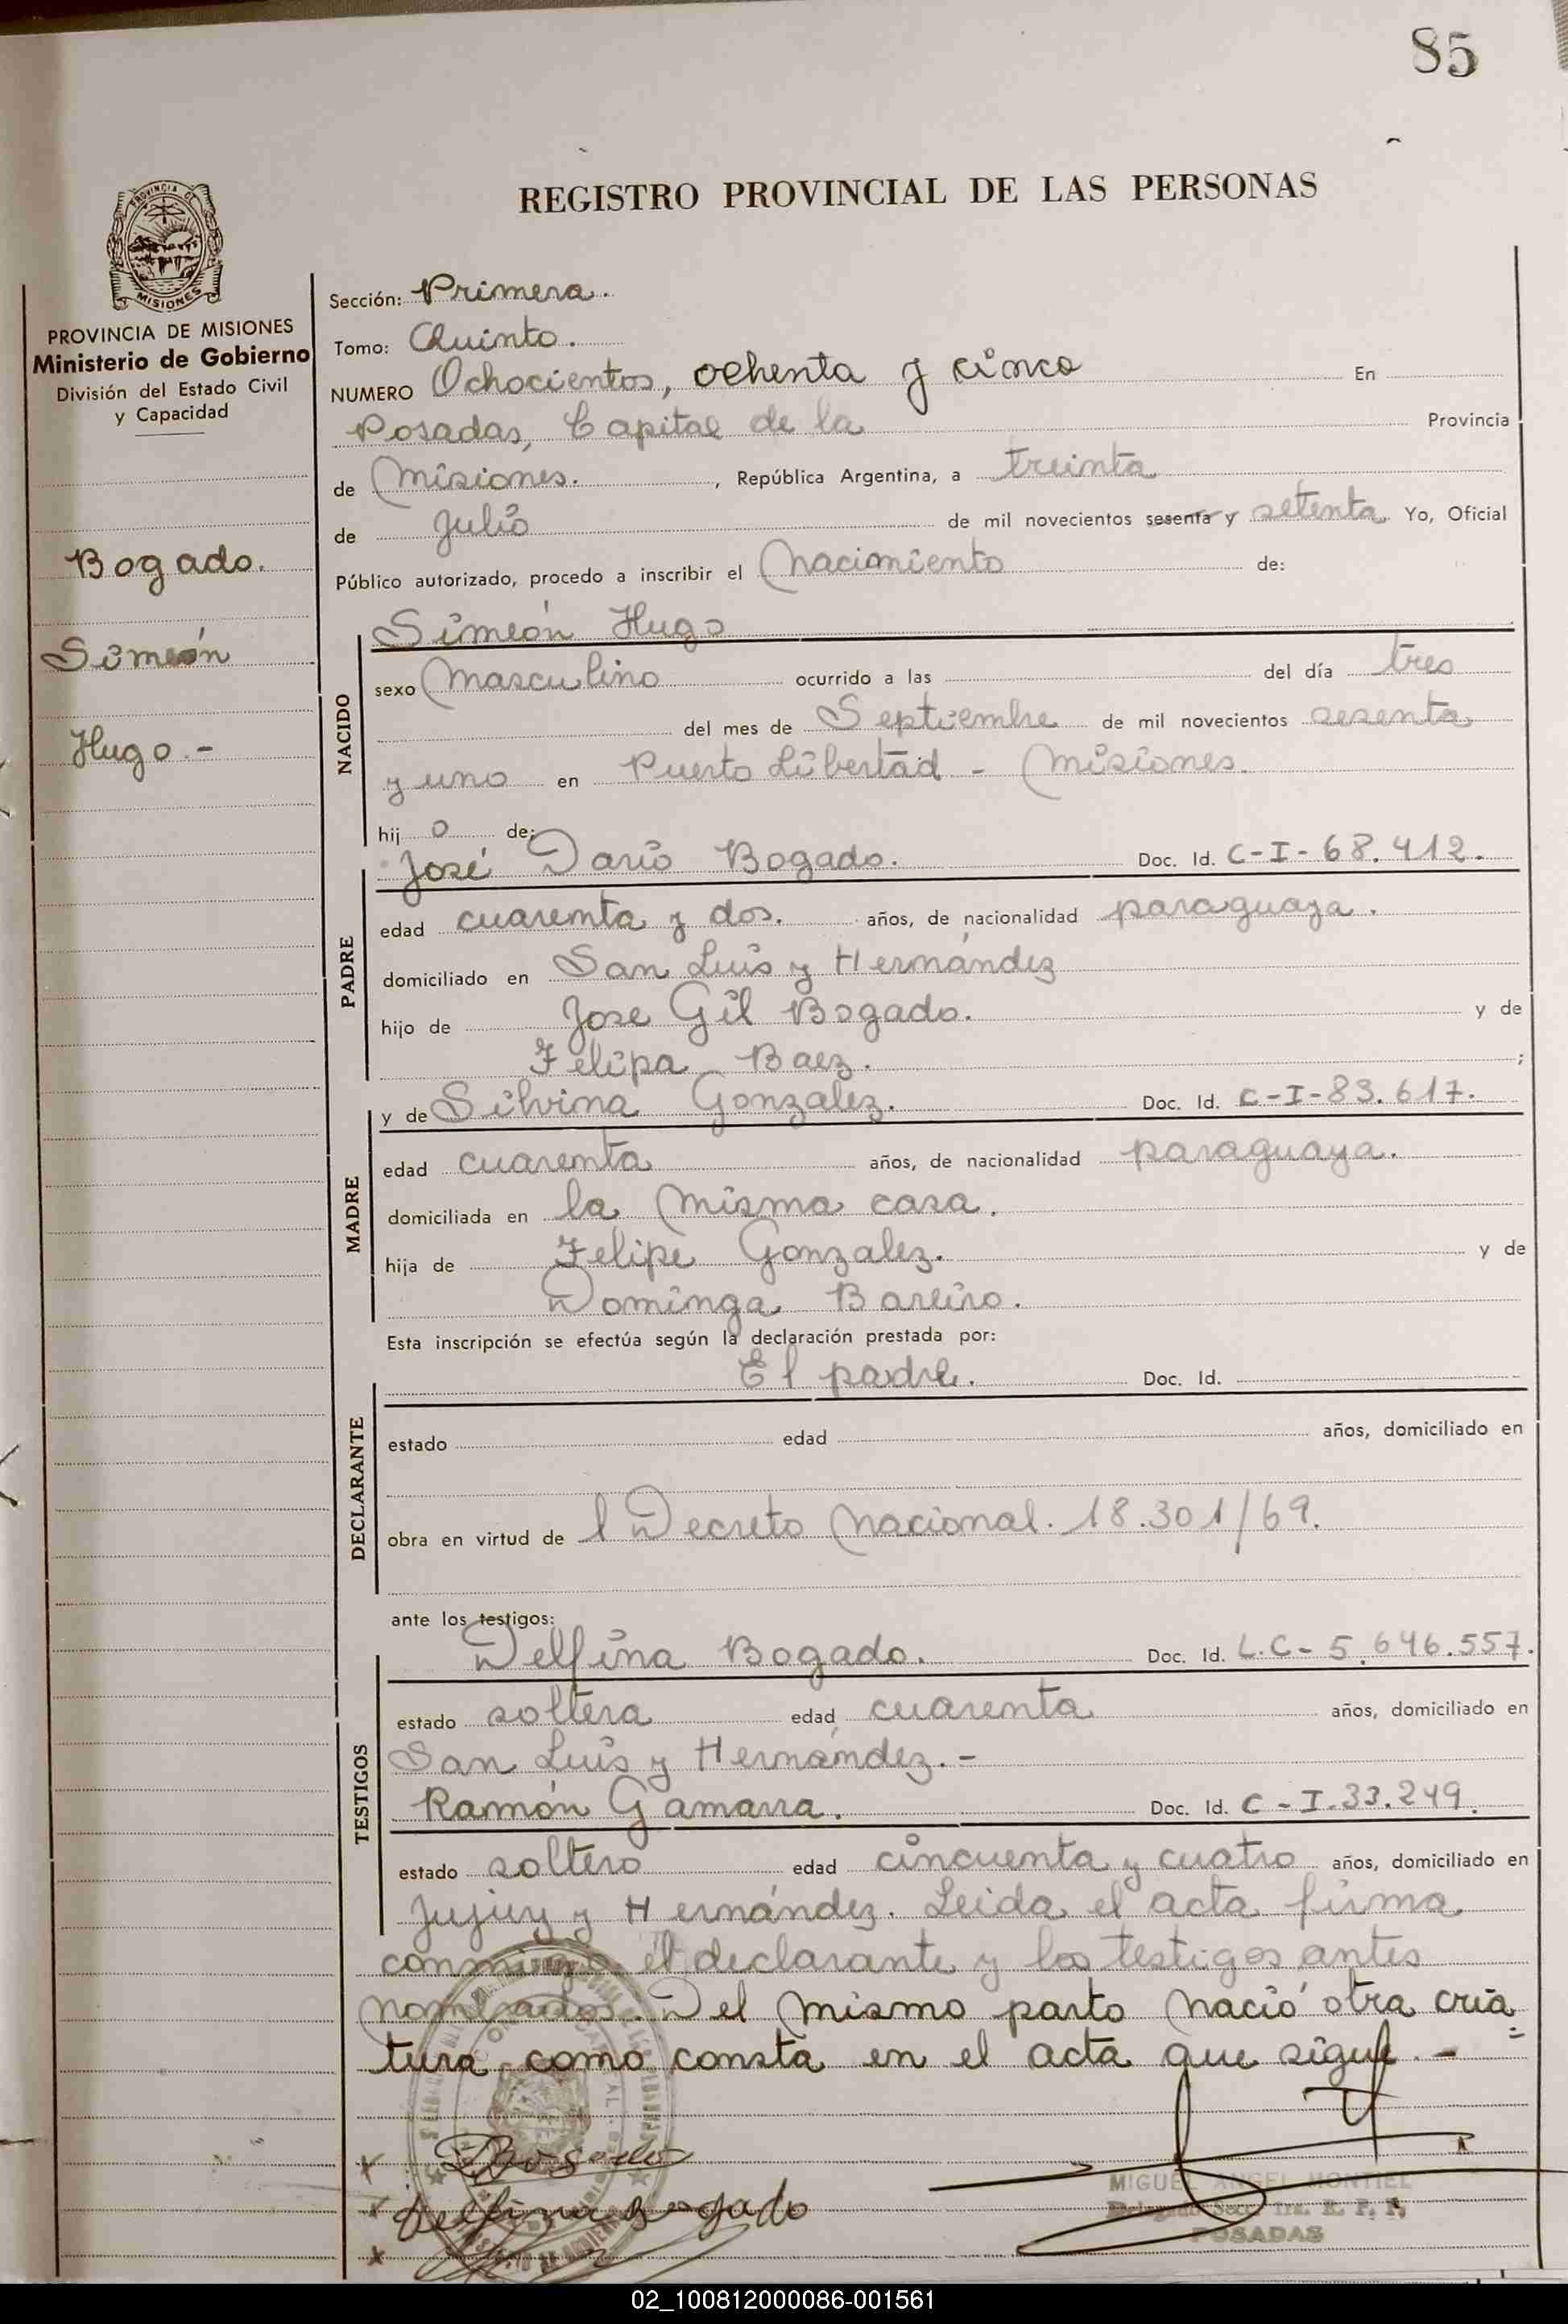 85
REGISTRO PROVINCIAL DE LAS PERSONAS
MISIONES
PROVINCIA DE MISIONES
Ministerio de Gobierno
División del Estado Civil
y Capacidad
Bogado.
Simeón
Hugo.-
Sección: Primera.
Tomo: Quinto.
NUMERO Ochocientos, ochenta y cinco En
Posadas, Capital de la Provincia
de Misiones. , República Argentina, a treinta
de Julio de mil novecientos sesenta y setenta. Yo, Oficial
Público autorizado, procedo a inscribir el Nacimiento de:
NACIDO
Simeón Hugo
sexo Masculino ocurrido a las del día tres
del mes de Septiembre de mil novecientos sesenta
y uno en Puerto Libertad - Misiones.
hij o de:
PADRE
José Darío Bogado. Doc. Id. C-I-68.412.
edad cuarenta y dos. años, de nacionalidad paraguaya.
domiciliado en San Luis y Hernández
hijo de Jose Gil Bogado. y de
Felipa Baez. ;
MADRE
y de Silvina Gonzalez. Doc. Id. C-I-83.617.
edad cuarenta años, de nacionalidad paraguaya.
domiciliada en la misma casa.
hija de Felipe Gonzalez. y de
Dominga Bareiro.
Esta inscripción se efectúa según la declaración prestada por:
DECLARANTE
El padre. Doc. Id.
estado edad años, domiciliado en
obra en virtud de l Decreto Nacional. 18.301/69.
ante los testigos:
TESTIGOS
Delfina Bogado. Doc. Id. L.C-5.646.557.
estado soltera edad cuarenta años, domiciliado en
San Luis y Hernández.-
Ramón Gamarra. Doc. Id. C-I.33.249.
estado soltero edad cincuenta y cuatro años, domiciliado en
Jujuy y Hernández. Leida el acta firma
conmigo el declarante y los testigos antes
nombrados. Del mismo parto nació otra cria=
tura como consta en el acta que sigue.-
Bogado
Delfina Bogado
MIGUEL ANGEL MONTIEL
Delegado Secc. 1ra. R. P. P.
POSADAS
02_100812000086-001561